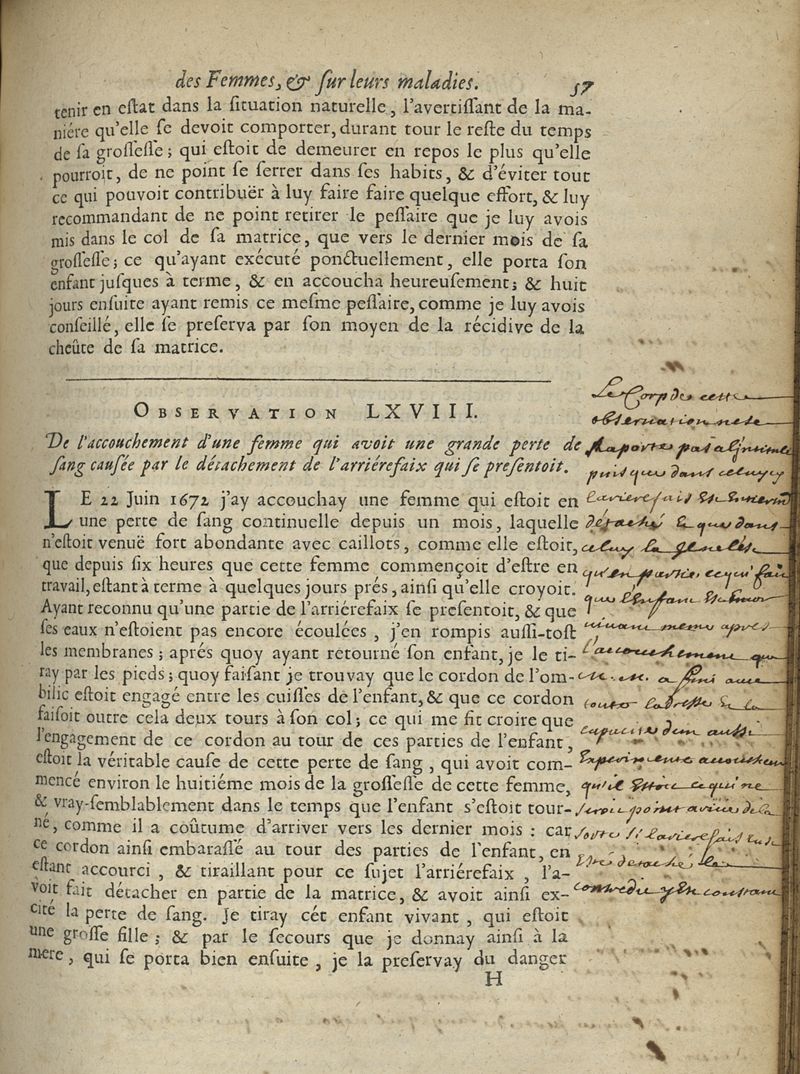 des Femmes, & ſur leurs maladies. 57
tenir en eſtat dans la ſituation naturelle, l'avertiſſant de la ma-
niére qu'elle ſe devoit comporter, durant tour le reſte du temps
de ſa groſſeſſe; qui eſtoit de demeurer en repos le plus qu'elle
pourroit, de ne point ſe ſerrer dans ſes habits, & d'éviter tout
ce qui pouvoit contribuër à luy faire faire quelque effort, & luy
recommandant de ne point retirer le peſſaire que je luy avois
mis dans le col de ſa matrice, que vers le dernier mois de ſa
groſſeſſe; ce qu'ayant exécuté ponctuellement, elle porta ſon
enfant juſques à terme, & en accoucha heureuſement; & huit
jours enſuite ayant remis ce meſme peſſaire, comme je luy avois
conſeillé, elle ſe preſerva par ſon moyen de la récidive de la
cheûte de ſa matrice.
OBSERVATION LXVIII.
De l'accouchement d'une femme qui avoit une grande perte de
ſang cauſée par le détachement de l'arriérefaix qui ſe preſentoit.
LE 22 Juin 1672 j'ay accouchay une femme qui eſtoit en
une perte de ſang continuelle depuis un mois, laquelle
n'eſtoit venuë fort abondante avec caillots, comme elle eſtoit,
que depuis ſix heures que cette femme commençoit d'eſtre en
travail, eſtant à terme à quelques jours prés, ainſi qu'elle croyoit.
Ayant reconnu qu'une partie de l'arriérefaix ſe preſentoit, & que
ſes eaux n'eſtoient pas encore écoulées, j'en rompis auſſi-toſt
les membranes; aprés quoy ayant retourné ſon enfant, je le ti-
ray par les pieds; quoy faiſant je trouvay que le cordon de l'om-
bilic eſtoit engagé entre les cuiſſes de l'enfant, & que ce cordon
faiſoit outre cela deux tours à ſon col; ce qui me fit croire que
l'engagement de ce cordon au tour de ces parties de l'enfant,
eſtoit la véritable cauſe de cette perte de ſang, qui avoit com-
mencé environ le huitiéme mois de la groſſeſſe de cette femme,
& vray-ſemblablement dans le temps que l'enfant s'eſtoit tour-
né, comme il a coûtume d'arriver vers les dernier mois: car
ce cordon ainſi embaraſſé au tour des parties de l'enfant, en
eſtant accourci, & tiraillant pour ce ſujet l'arriérefaix, l'a-
voit fait détacher en partie de la matrice, & avoit ainſi ex-
cité la perte de ſang. Je tiray cét enfant vivant, qui eſtoit
une groſſe fille; & par le ſecours que je donnay ainſi à la
mere, qui ſe porta bien enſuite, je la preſervay du danger
H
Le Corp de cette
obſervation ne ſe
raporte pas a
puis que dans celuy cy
l'arierefais
détaché & que dans
celuy la
qu'en partie, ce qui fait
que l'enfant
apres
l'acouchement
a
la
capacité d'un
qu'il ce qui ne
point
ſorte ſi l'arierefais
détaché